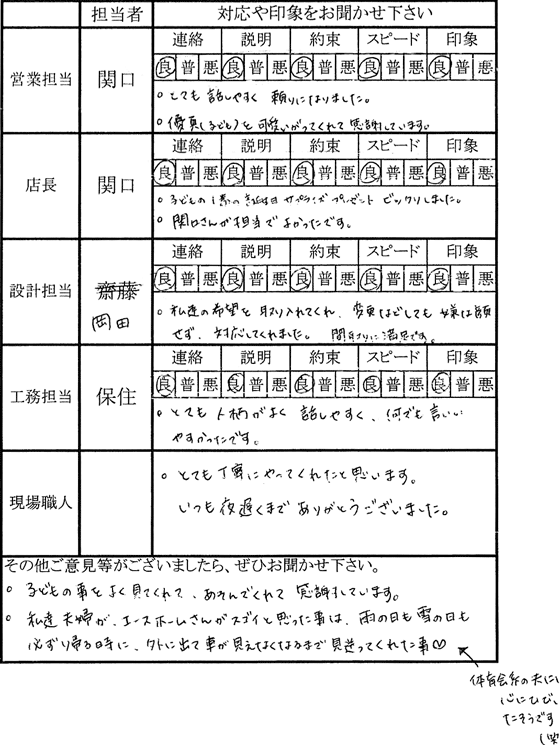 担当者 対応や印象をお聞かせ下さい
営業担当 関口
連絡 説明 約束 スピード 印象
良 普 悪 良 普 悪 良 普 悪 良 普 悪 良 普 悪
○ とても 話しやすく 頼りになりました。
○ 優真(子ども)を可愛いがってくれて感謝しています。
店長 関口
連絡 説明 約束 スピード 印象
良 普 悪 良 普 悪 良 普 悪 良 普 悪 良 普 悪
○ 子どもの1歳の誕生日サプライズプレゼント ビックリしました。
○ 関口さんが担当でよかったです。
設計担当 齋藤
岡田
連絡 説明 約束 スピード 印象
良 普 悪 良 普 悪 良 普 悪 良 普 悪 良 普 悪
○ 私達の希望を取り入れてくれ、変更などしても嫌な顔
せず、対応してくれました。 間取りに満足です。
工務担当 保住
連絡 説明 約束 スピード 印象
良 普 悪 良 普 悪 良 普 悪 良 普 悪 良 普 悪
○ とても人柄がよく 話しやすく、何でも言いい
やすかったです。
現場職人
○ とても丁寧にやってくれたと思います。
いつも夜遅くまで ありがとうございました。
その他ご意見等がございましたら、ぜひお聞かせ下さい。
○ 子どもの事をよく見てくれて、あそんでくれて 感謝しています。
○ 私達夫婦が、エースホームさんがスゴイと思った事は、雨の日も雪の日も
必ず帰る時に、外に出て車が見えなくなるまで見送ってくれた事♡
体育会系の夫に
心にひび、
たそうです
(笑